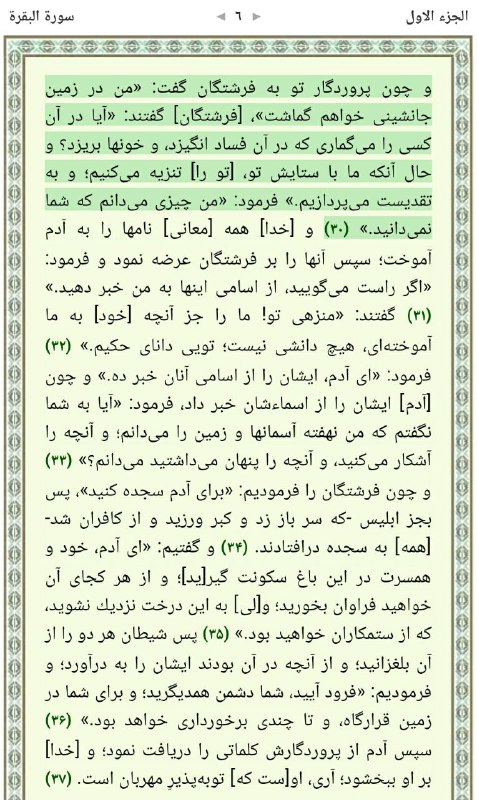 الجزء الاول ◀ ٦ ▶ سورة البقرة
و چون پروردگار تو به فرشتگان گفت: «من در زمین
جانشینی خواهم گماشت»، [فرشتگان] گفتند: «آیا در آن
کسی را می‌گماری که در آن فساد انگیزد، و خونها بریزد؟ و
حال آنکه ما با ستایش تو، [تو را] تنزیه می‌کنیم؛ و به
تقدیست می‌پردازیم.» فرمود: «من چیزی می‌دانم که شما
نمی‌دانید.» (۳۰) و [خدا] همه [معانی] نامها را به آدم
آموخت؛ سپس آنها را بر فرشتگان عرضه نمود و فرمود:
«اگر راست می‌گویید، از اسامی اینها به من خبر دهید.»
(۳۱) گفتند: «منزهی تو! ما را جز آنچه [خود] به ما
آموخته‌ای، هیچ دانشی نیست؛ تویی دانای حکیم.» (۳۲)
فرمود: «ای آدم، ایشان را از اسامی آنان خبر ده.» و چون
[آدم] ایشان را از اسماءشان خبر داد، فرمود: «آیا به شما
نگفتم که من نهفته آسمانها و زمین را می‌دانم؛ و آنچه را
آشکار می‌کنید، و آنچه را پنهان می‌داشتید می‌دانم؟» (۳۳)
و چون فرشتگان را فرمودیم: «برای آدم سجده کنید»، پس
بجز ابلیس -که سر باز زد و کبر ورزید و از کافران شد-
[همه] به سجده درافتادند. (۳۴) و گفتیم: «ای آدم، خود و
همسرت در این باغ سکونت گیر[ید]؛ و از هر کجای آن
خواهید فراوان بخورید؛ و[لی] به این درخت نزدیك نشوید،
که از ستمکاران خواهید بود.» (۳۵) پس شیطان هر دو را از
آن بلغزانید؛ و از آنچه در آن بودند ایشان را به درآورد؛ و
فرمودیم: «فرود آیید، شما دشمن همدیگرید؛ و برای شما در
زمین قرارگاه، و تا چندی برخورداری خواهد بود.» (۳۶)
سپس آدم از پروردگارش کلماتی را دریافت نمود؛ و [خدا]
بر او ببخشود؛ آری، او[ست که] توبه‌پذیرِ مهربان است. (۳۷)